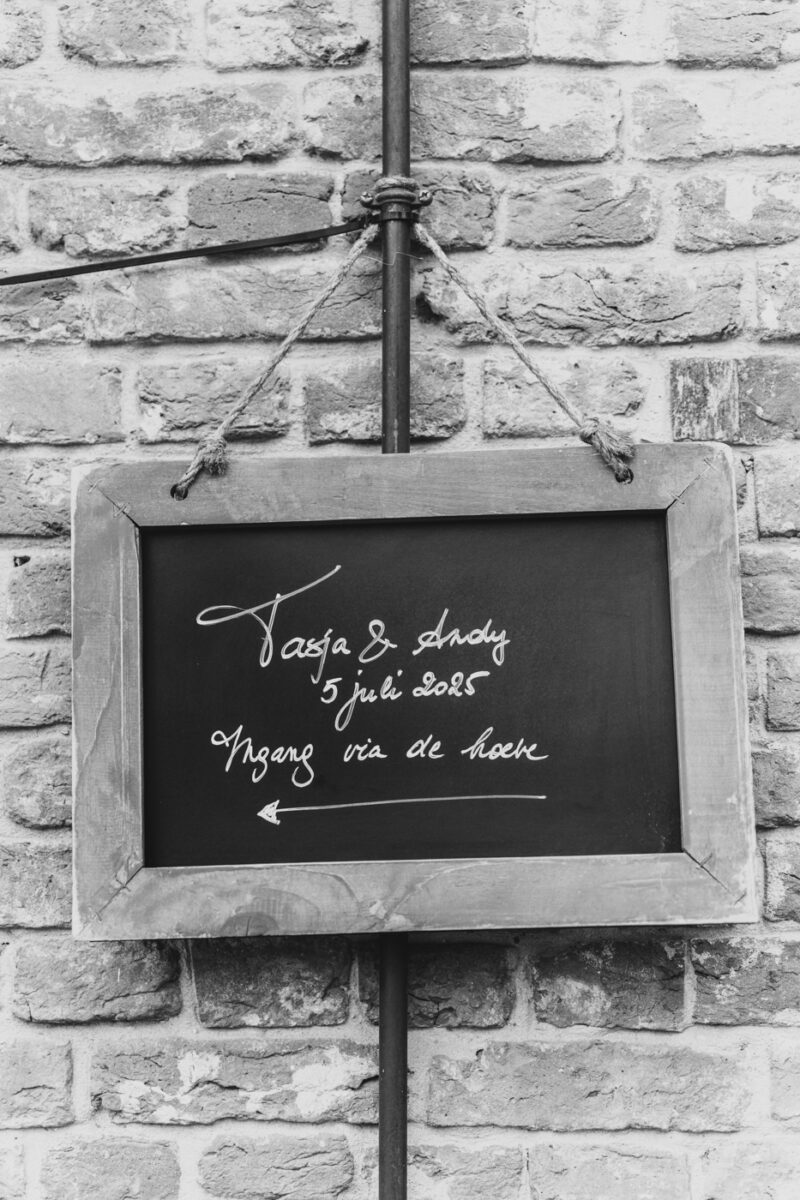 Tasja & Andy
5 juli 2025
Ingang via de hoeve